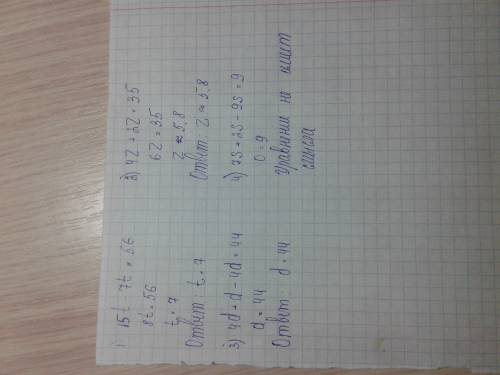 1) 15t 7t = 56
8t = 56
t = 7
Ответ: t = 7
3) 4d + d - 4d = 44
d = 44
Ответ: d = 44
2) 4z + 2z = 35
6z = 35
z ≈ 5,8
Ответ: z ≈ 5,8
4) 7s + 2s - 9s = 9
0 = 9
Уравнение не имеет
смысла